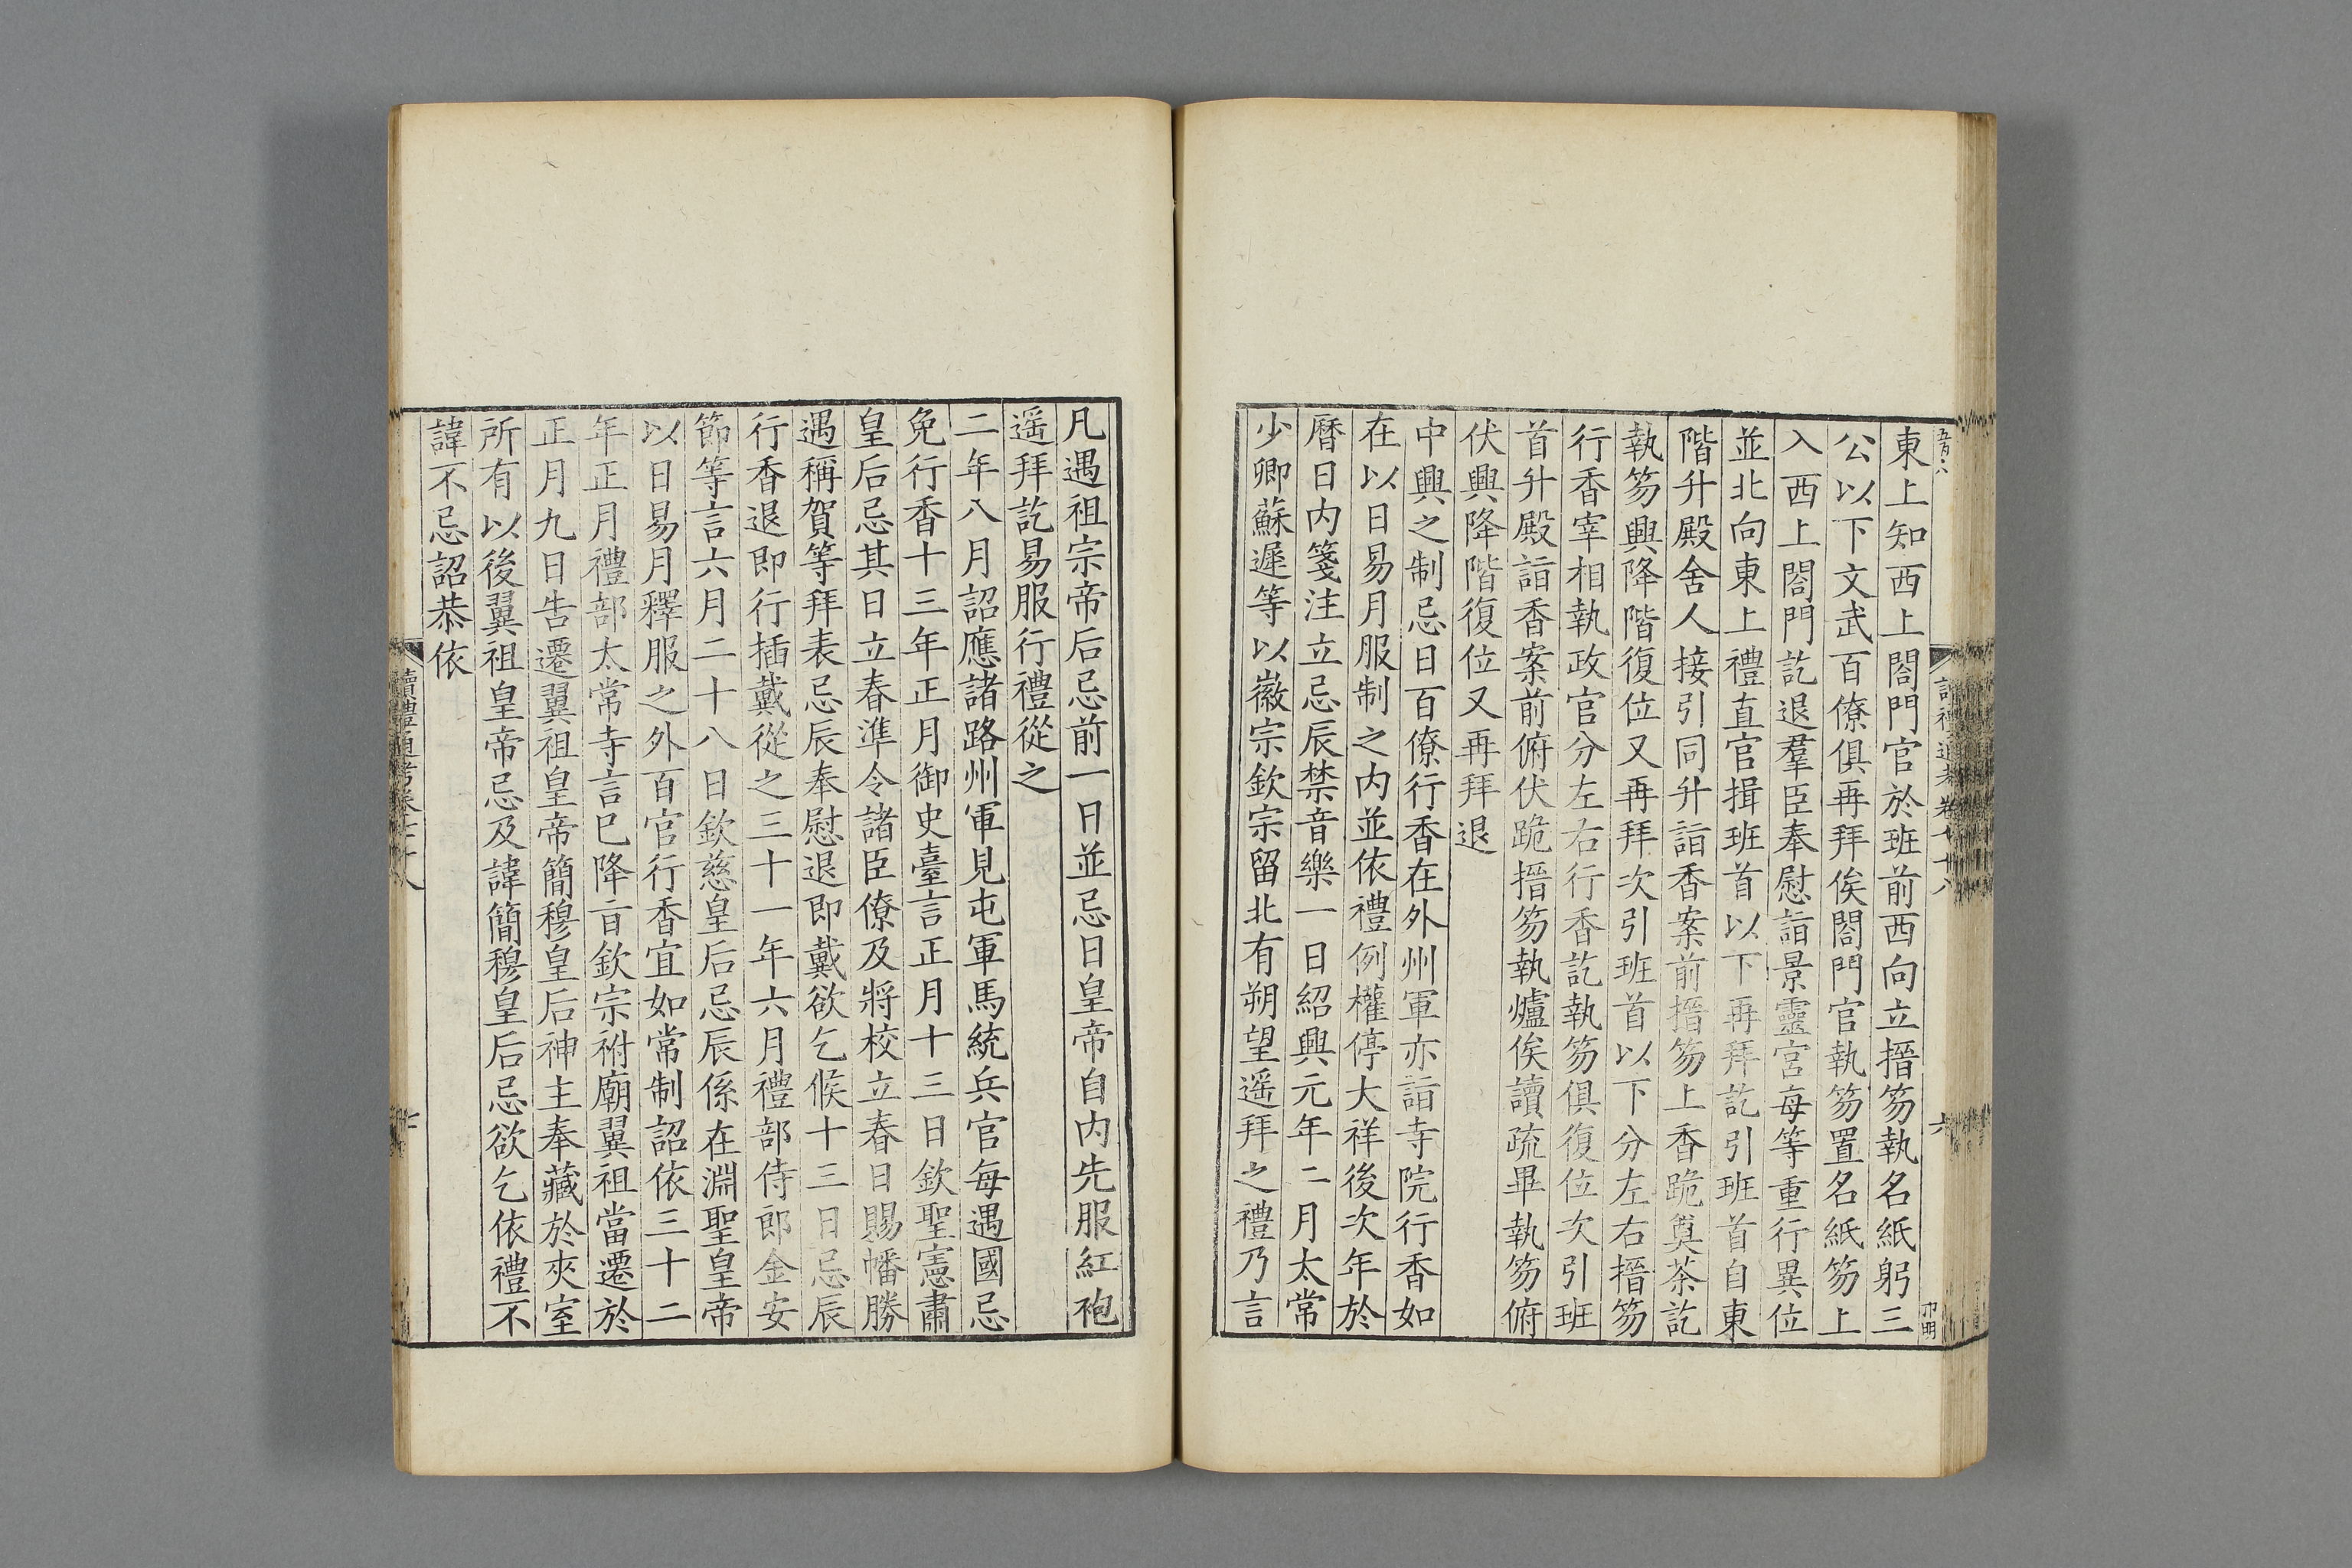 東上知西上閤門官於班前西向立搢笏執名紙躬三
公以下文武百僚俱再拜俟閤門官執笏置名紙笏上
入西上閤門訖退羣臣奉慰詣景靈宮每等重行異位
並北向東上禮直官揖班首以下再拜訖引班首自東
階升殿舍人接引同升詣香案前搢笏上香跪奠茶訖
執笏興降階復位又再拜次引班首以下分左右搢笏
行香宰相執政官分左右行香訖執笏俱復位次引班
首升殿詣香案前俯伏跪搢笏執爐俟讀疏畢執笏俯
伏興降階復位又再拜退
中興之制忌日百僚行香在外州軍亦詣寺院行香如
在以日易月服制之內並依禮例權停大祥後次年於
曆日內箋注立忌辰禁音樂一日紹興元年二月太常
少卿蘇遲等以徽宗欽宗留北有朔望遥拜之禮乃言
凡遇祖宗帝后忌前一日並忌日皇帝自內先服紅袍
遥拜訖易服行禮從之
二年八月詔應諸路州軍見屯軍馬統兵官每遇國忌
免行香十三年正月御史臺言正月十三日欽聖憲肅
皇后忌其日立春準令諸臣僚及將校立春日賜幡勝
遇稱賀等拜表忌辰奉慰退即戴欲乞候十三日忌辰
行香退即行插戴從之三十一年六月禮部侍郎金安
節等言六月二十八日欽慈皇后忌辰係在淵聖皇帝
以日易月釋服之外百官行香宜如常制詔依三十二
年正月禮部太常寺言已降㫖欽宗祔廟翼祖當遷於
正月九日告遷翼祖皇帝簡穆皇后神主奉藏於夾室
所有以後翼祖皇帝忌及諱簡穆皇后忌欲乞依禮不
諱不忌詔恭依
讀禮通考卷七十八